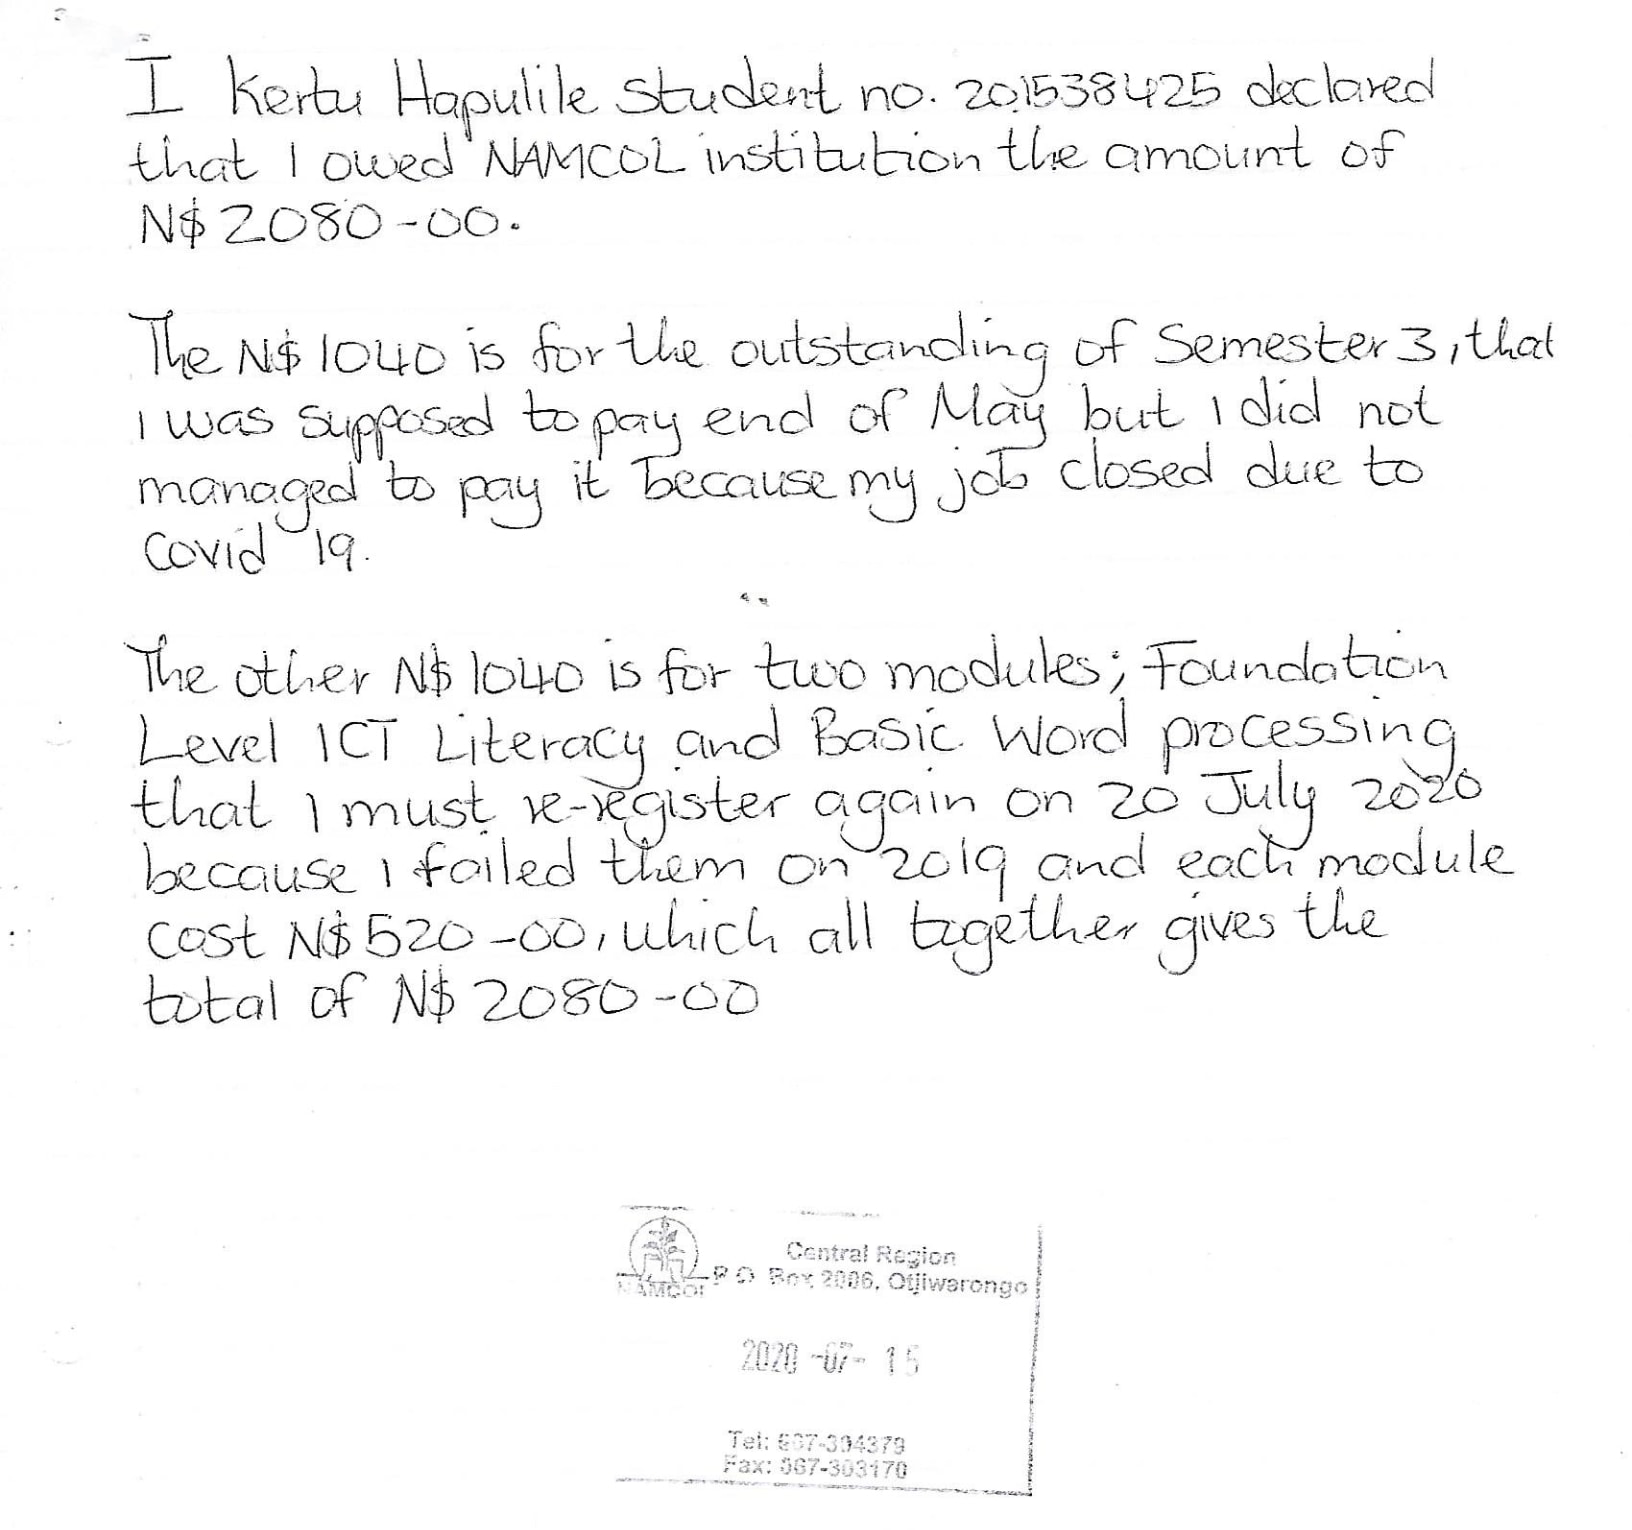 I Kertu Hapulile student no. 201538425 declared
that I owed NAMCOL institution the amount of
N$ 2080-00.
The N$ 1040 is for the outstanding of Semester 3, that
I was supposed to pay end of May but I did not
managed to pay it because my job closed due to
Covid 19.
The other N$ 1040 is for two modules; Foundation
Level ICT Literacy and Basic Word processing
that I must re-register again on 20 July 2020
because I failed them on 2019 and each module
cost N$ 520-00, which all together gives the
total of N$ 2080-00
Central Region
P O Box 2006, Otjiwarongo
NAMCOL
2020 -07- 15
Tel: 067-304379
Fax: 067-303170